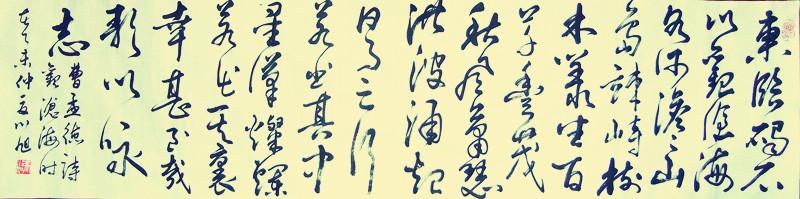 東臨碣石
以觀滄海
水何澹々山
島竦峙樹
木叢生百
草豐茂
秋風蕭瑟
洪波涌起
日月之行
若出其中
星漢燦爛
若出其裏
幸甚至哉
歌以詠
志
曹孟德詩
觀滄海時
未仲夏